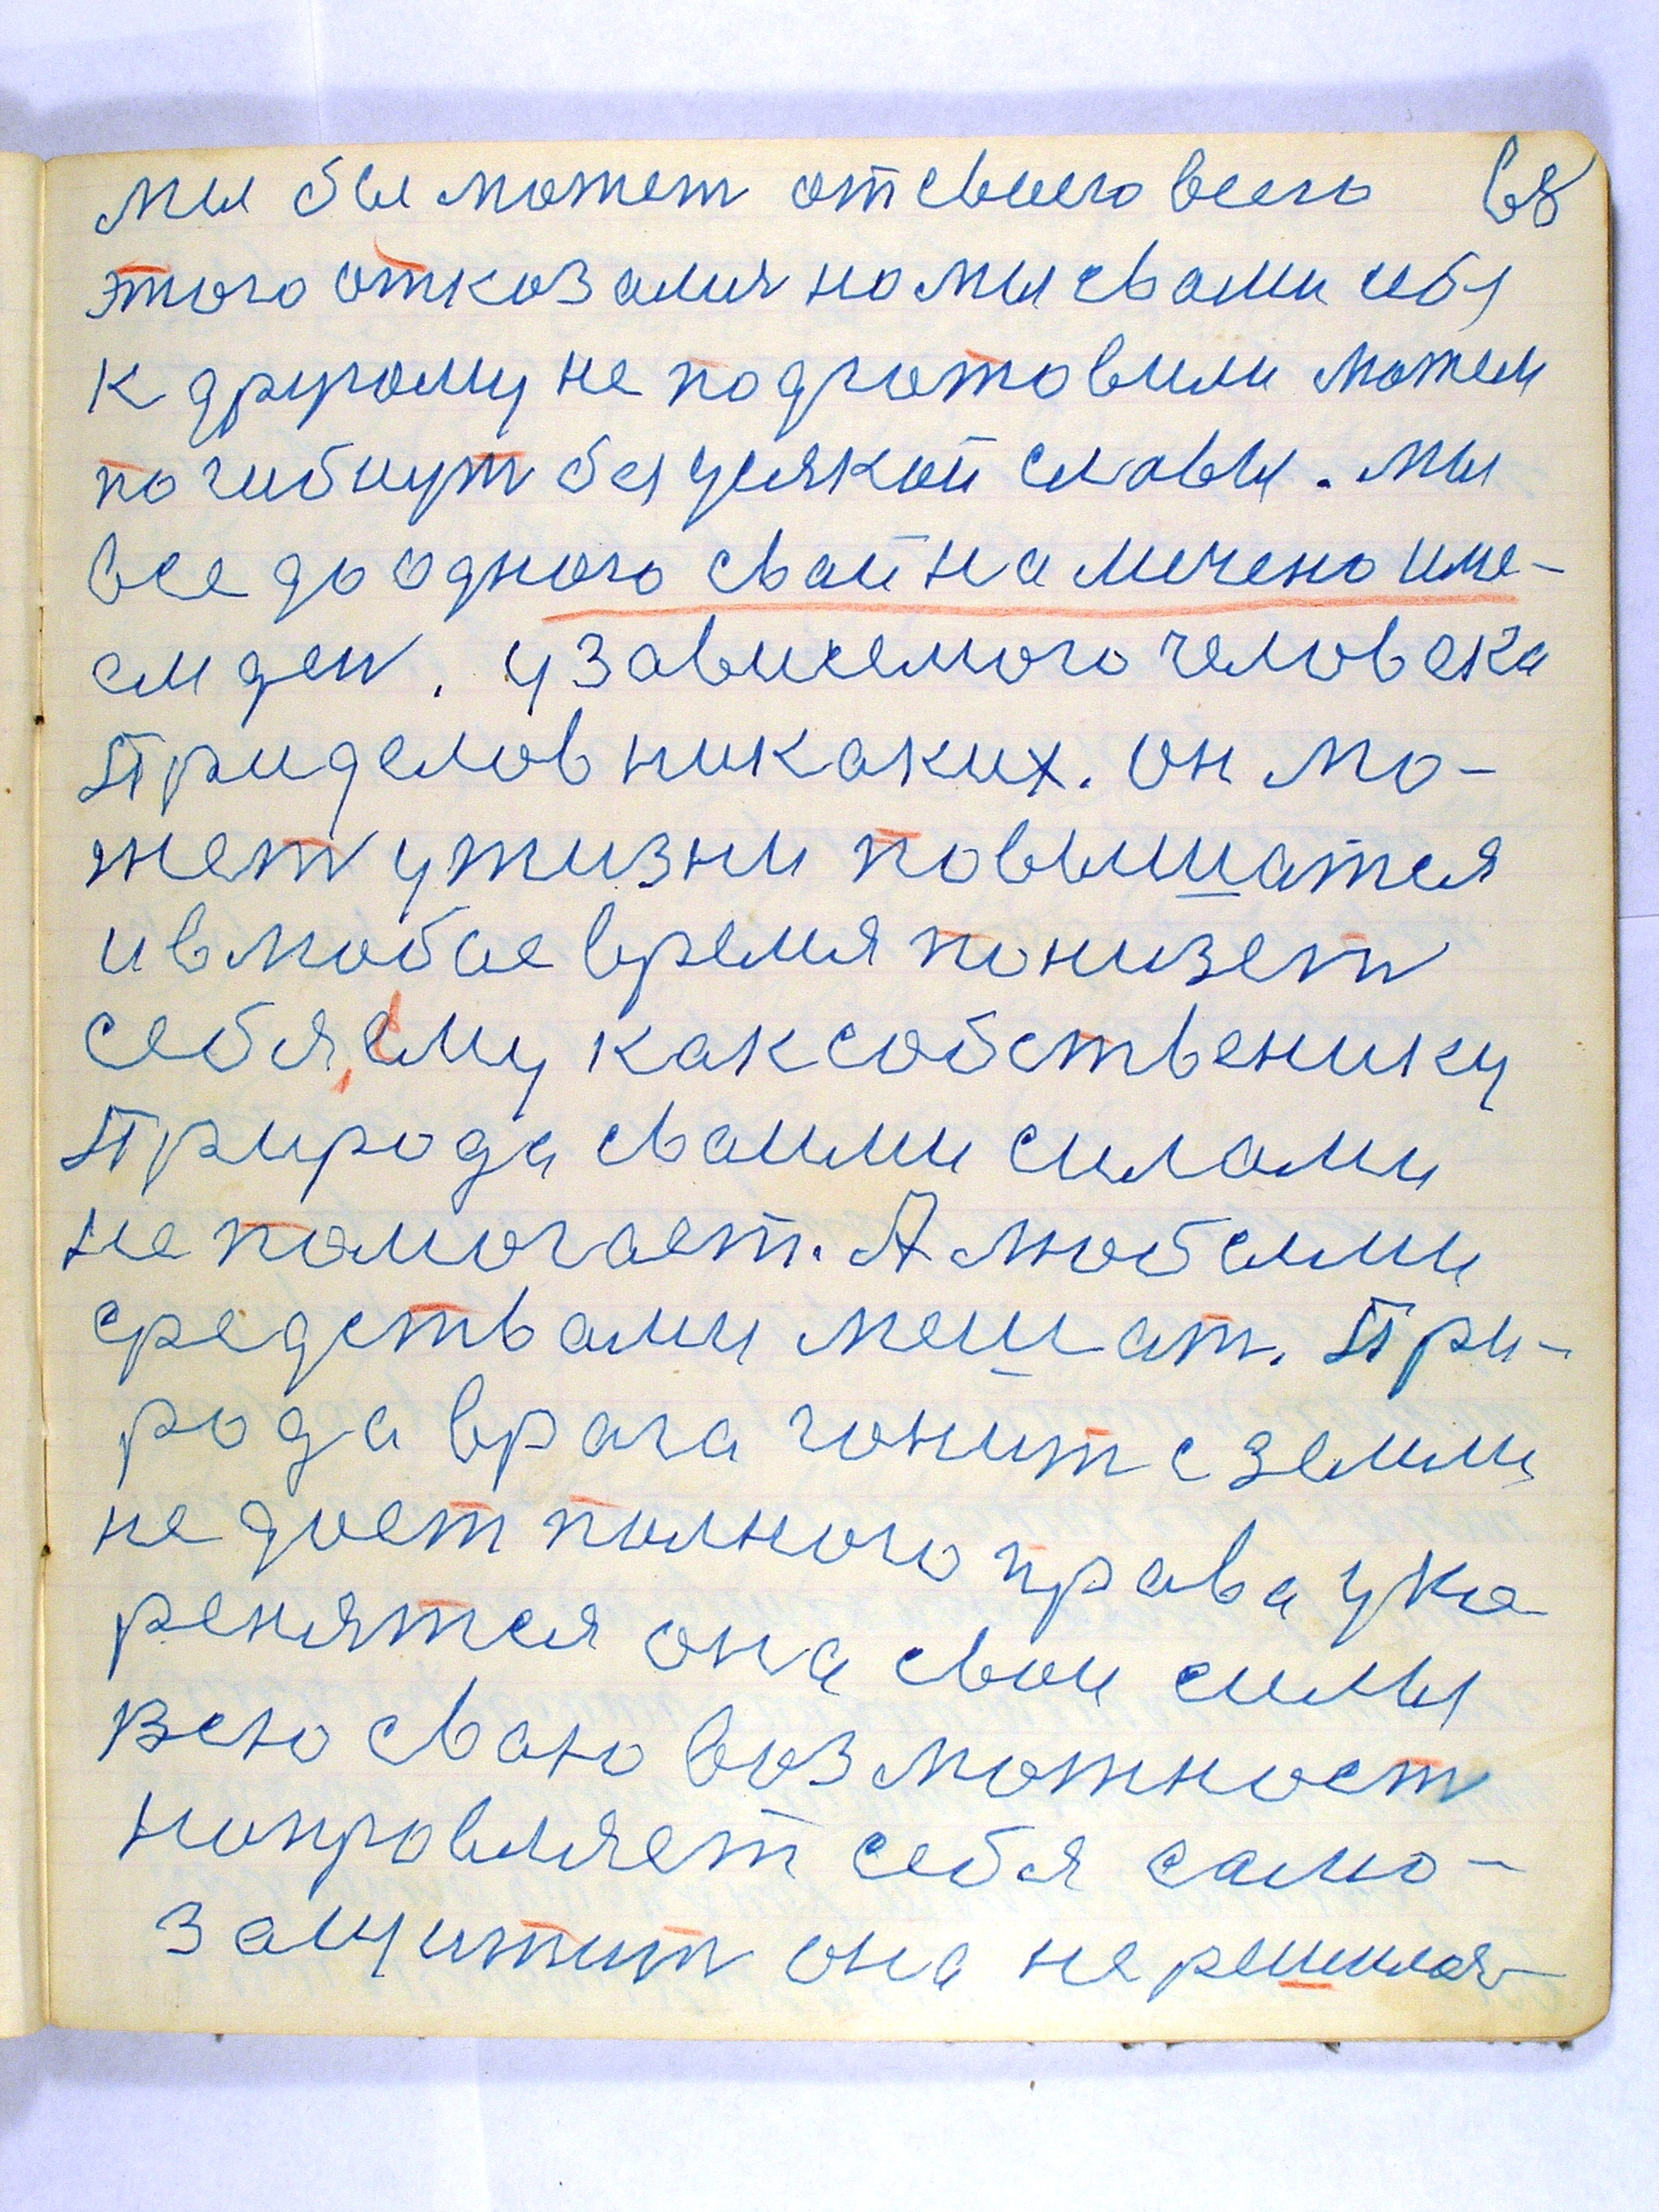 мы быможем отсвоего всего 68
этого отказался но мы свами себя
к другому не подготовили можем
погибнут без усякой славы. мы
все до одного свай намечено име-
ем ден. у зависемого человека
Приделов никаких. он мо-
жет у жизни повышатся
и в любое время понизет
себя, ему как собственику
Природа сваими силами
не помогает. А любеями
средствами мешат. При-
рода врага гонит с земли
не дает полного права уко
ренятся она свои силы
всю сваю возможност
направляет себя само-
защитит она не решилая-